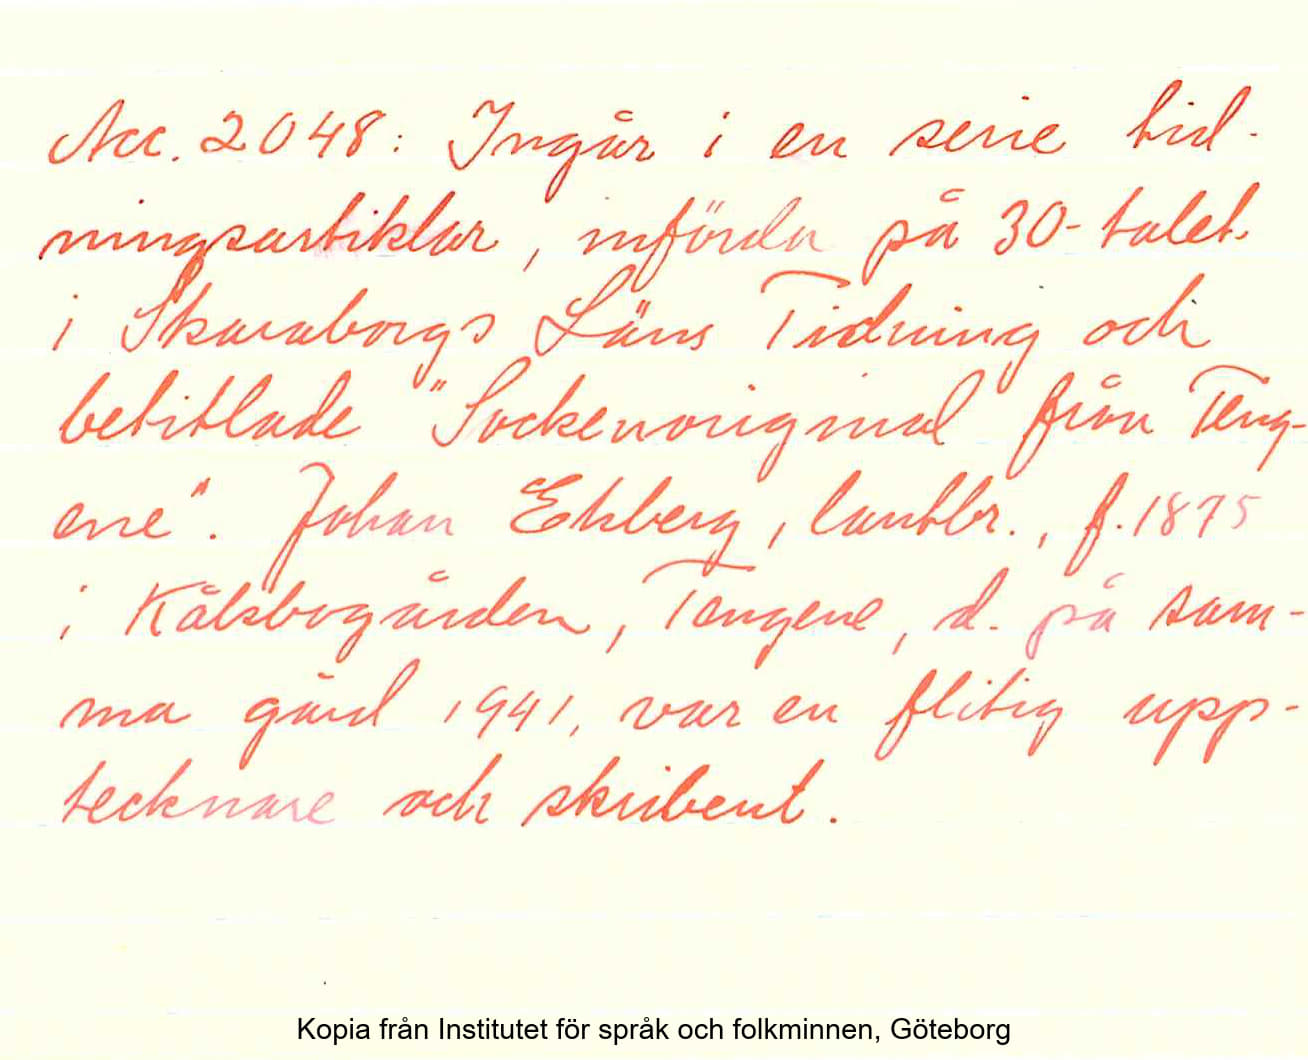 Acc. 2048: Ingår i en serie tid-
ningsartiklar, införda på 30-talet
i Skaraborgs Läns Tidning och
betitlade "Sockenoriginal från Teng-
ene". Johan Ekberg, lantbr., f. 1875
i Kålsbogården, Tengene, d. på sam-
ma gård 1941, var en flitig upp-
tecknare och skribent.
Kopia från Institutet för språk och folkminnen, Göteborg